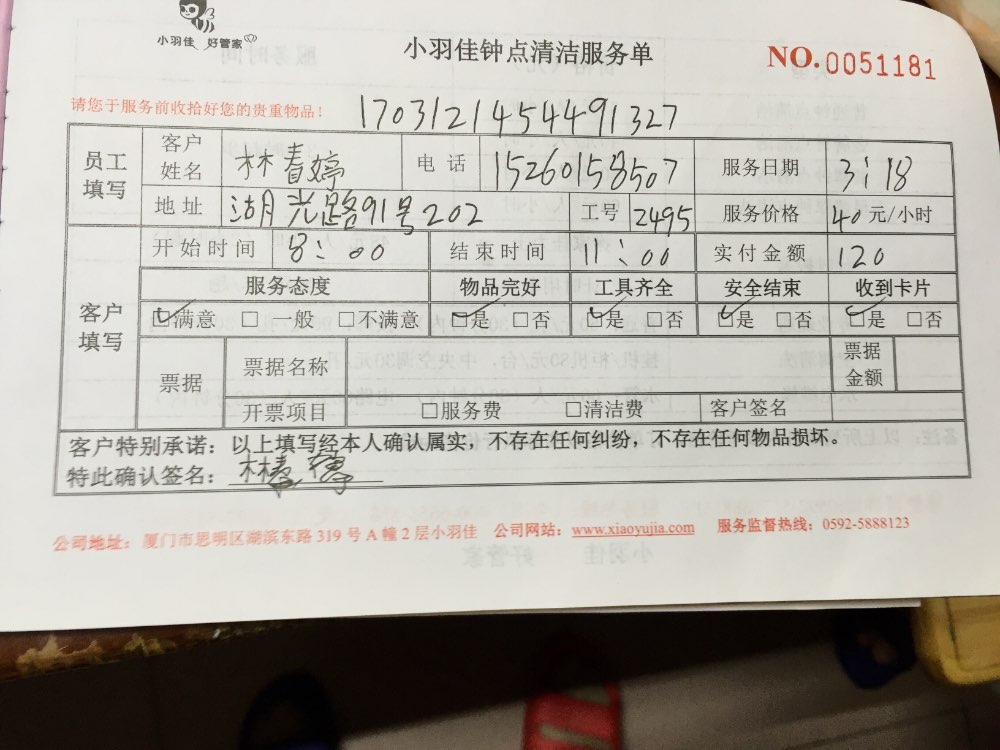 小羽佳 好管家
小羽佳钟点清洁服务单
NO.0051181
请您于服务前收拾好您的贵重物品！
1703121454491327
员工填写 客户姓名 林春婷 电话 15260158507 服务日期 3:18
地址 湖光路91号202 工号 2495 服务价格 40元/小时
客户填写 开始时间 8:00 结束时间 11:00 实付金额 120
服务态度 物品完好 工具齐全 安全结束 收到卡片
☑满意 □一般 □不满意 ☑是 □否 ☑是 □否 ☑是 □否 ☑是 □否
票据 票据名称 票据金额
开票项目 □服务费 □清洁费 客户签名
客户特别承诺：以上填写经本人确认属实，不存在任何纠纷，不存在任何物品损坏。
特此确认签名：
公司地址：厦门市思明区湖滨东路319号A幢2层小羽佳 公司网站：www.xiaoyujia.com 服务监督热线：0592-5888123